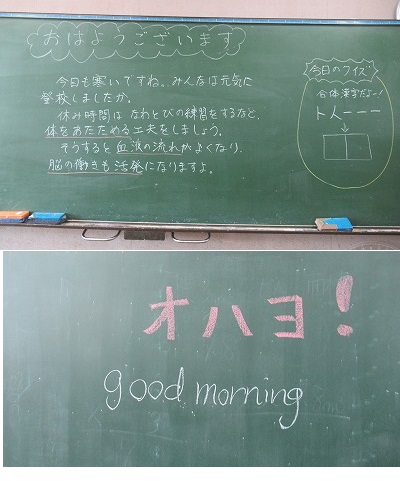 おはようございます
今日も寒いですね。みんなは元気に
登校しましたか。
休み時間はなわとびの練習をするなど、
体をあたためる工夫をしましょう。
そうすると血液の流れがよくなり、
脳の働きも活発になりますよ。
今日のクイズ
合体漢字だよー!
ト人一一一
オハヨ!
good morning